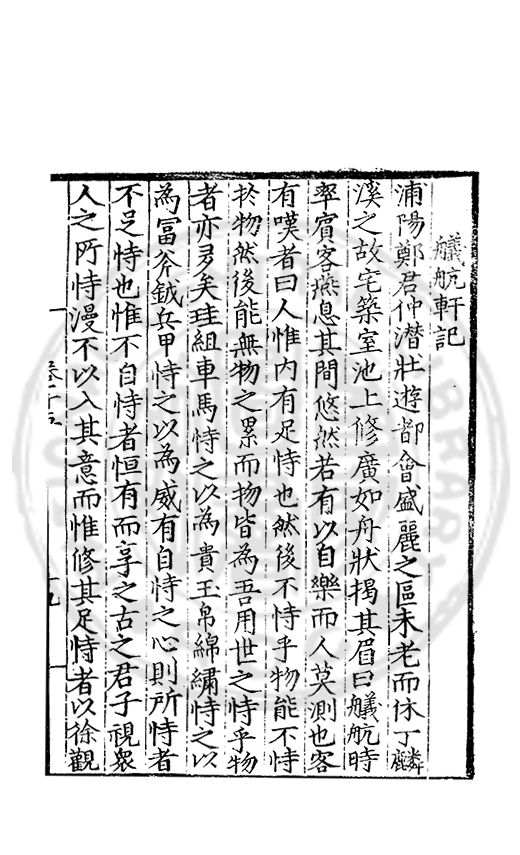 艤航軒記
浦陽鄭君仲潛壯遊都會盛麗之區未老而休丁麟
溪之故宅築室池上修廣如舟狀揭其眉曰艤航時
率賓客燕息其間悠然若有以自樂而人莫測也客
有嘆者曰人惟內有足恃也然後不恃乎物能不恃
於物然後能無物之累而物皆為吾用世之恃乎物
者亦多矣珪組車馬恃之以為貴玉帛綿繡恃之以
為富斧鉞兵甲恃之以為威有自恃之心則所恃者
不足恃也惟不自恃者恒有而享之古之君子視衆
人之所恃漫不以入其意而惟修其足恃者以徐觀
卷十五
十九